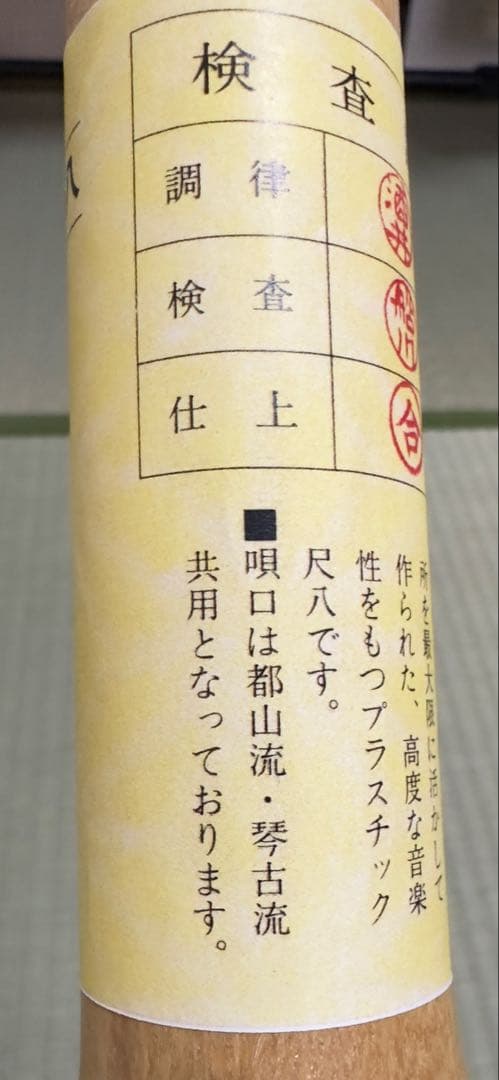 検査
調律
検査
仕上 合
所を最大限に活かして
作られた、高度な音楽
性をもつプラスチック
尺八です。
■唄口は都山流・琴古流
共用となっております。